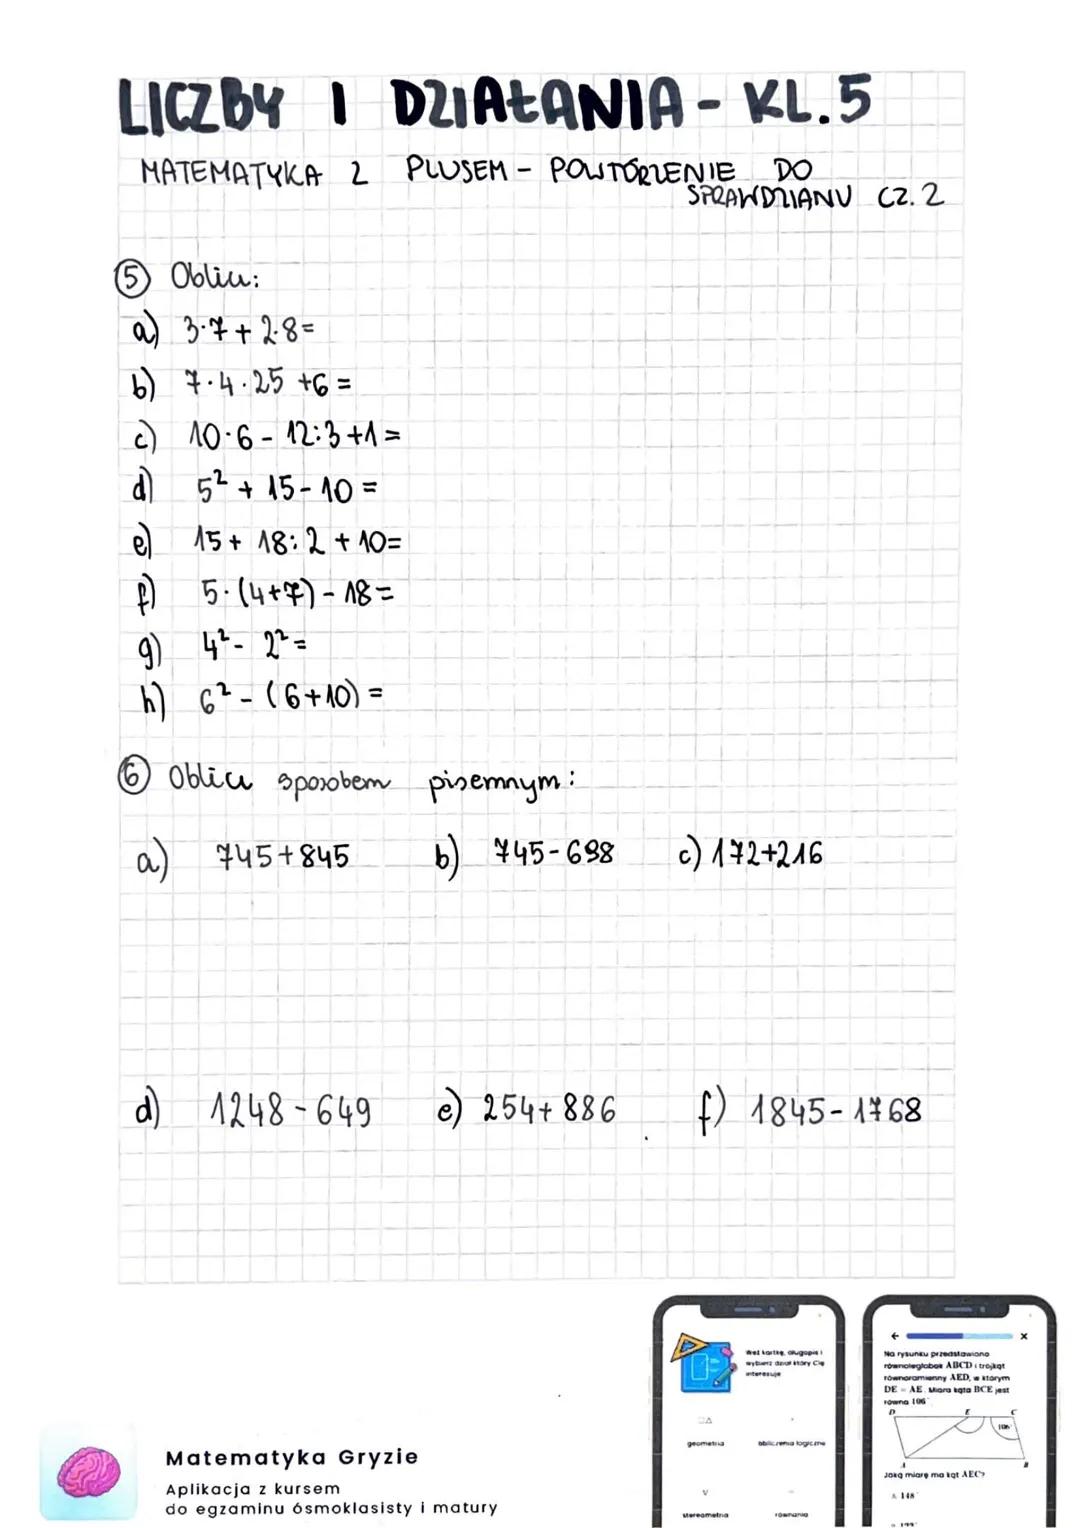 LICZBY I DZIAŁANIA - KL.5
MATEMATYKA Z PLUSEM - POWTÓRZENIE DO
SPRAWDZIANU CZ. 2
5 Oblicz:
a) 3·7+2·8=
b) 7·4·25+6=
c) 10·6-12:3+1=
d) 5²+15-10=
e) 15+18:2+10=
f) 5·(4+7)-18=
g) 4²-2²=
h) 6²-(6+10)=
6 Oblicz sposobem pisemnym:
a) 745+845 b) 745-698 c) 172+216
d) 1248-649 e) 254+886 f) 1845-1768
Weź kartkę, długopis i
wybierz dział który Cię
interesuje
geometria obliczenia logiczne
stereometria równania
Na rysunku przedstawiono
równoległobok ABCD i trójkąt
równoramienny AED, w którym
DE = AE. Miara kąta BCE jest
równa 106°
D E C
106°
A B
Jaką miarę ma kąt AEC?
A. 148°
Matematyka Gryzie
Aplikacja z kursem
do egzaminu ósmoklasisty i matury